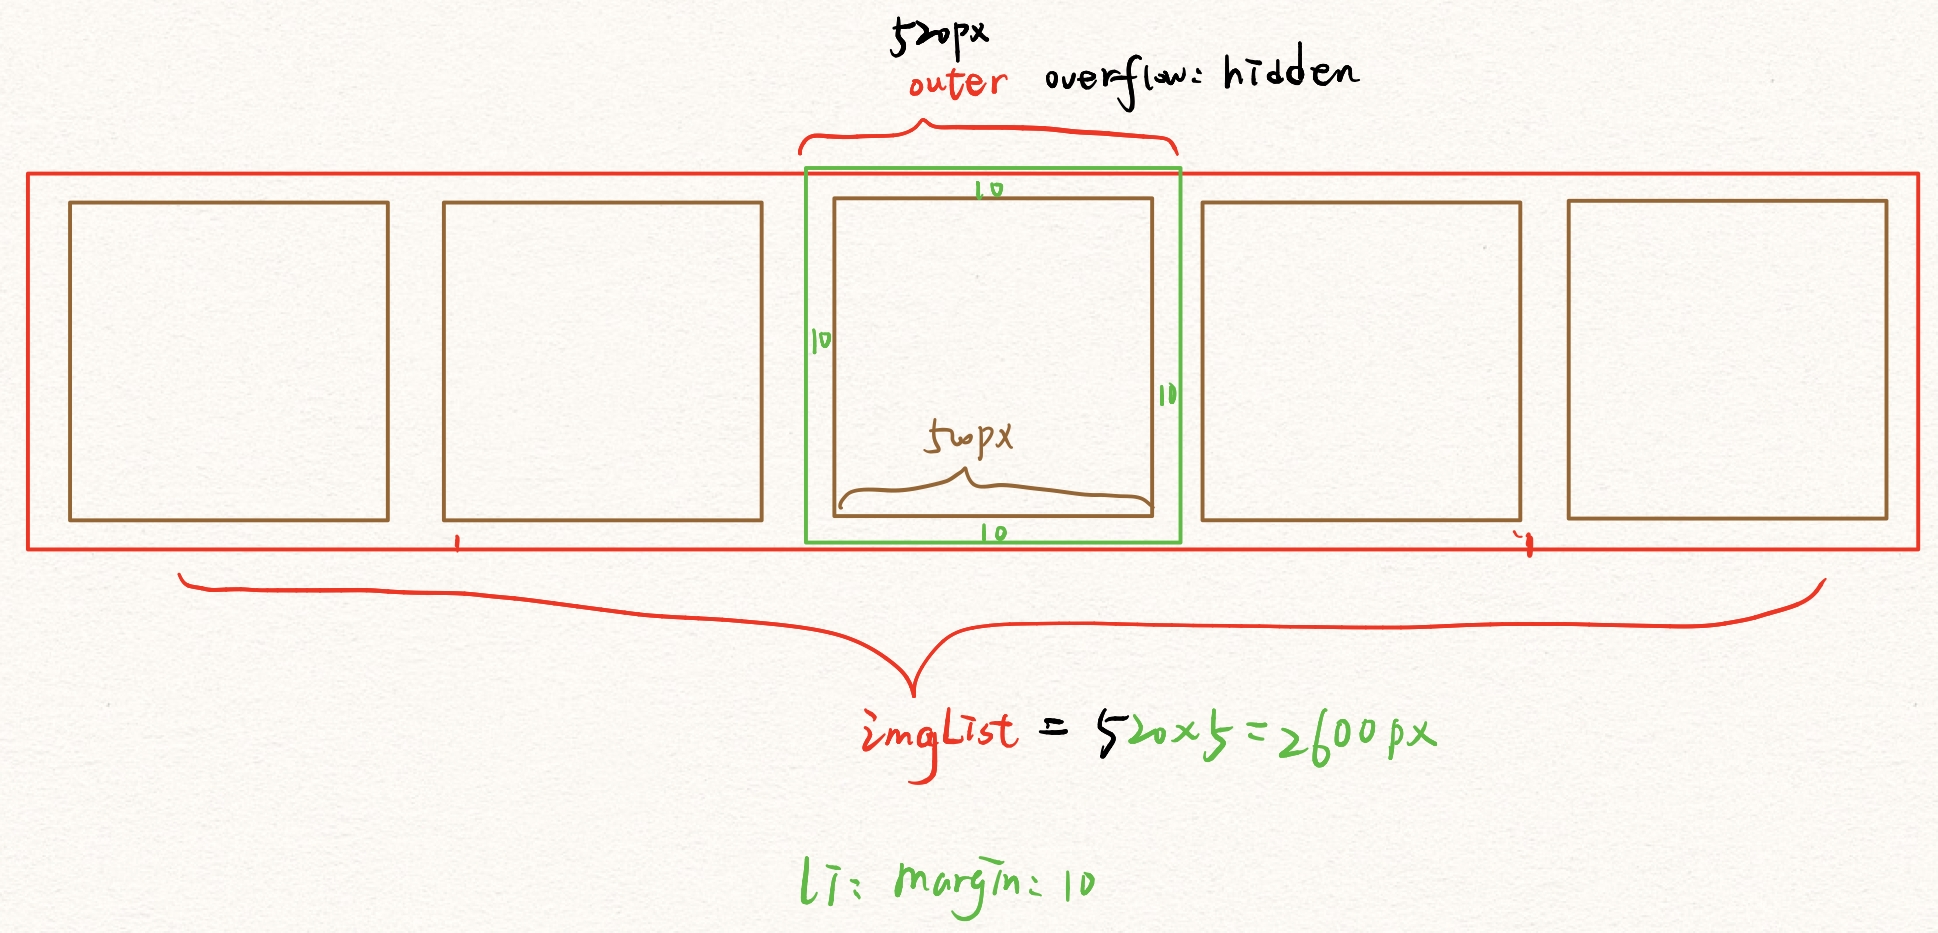 520px
outer overflow: hidden
10
10
10
500px
10
imgList = 520x5=2600px
li: margin: 10